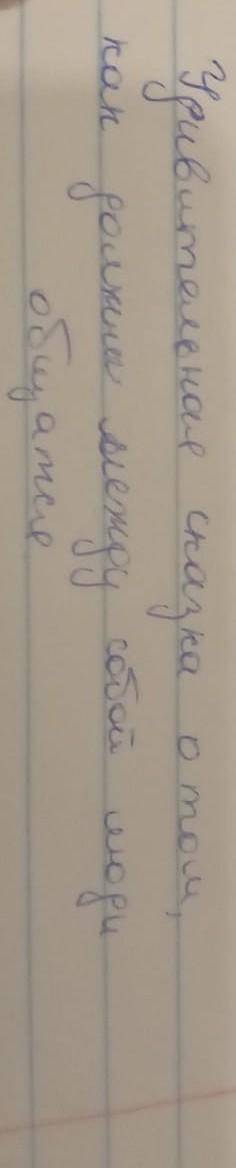 Удивительная сказка о том,
как должны между собой люди
общаться